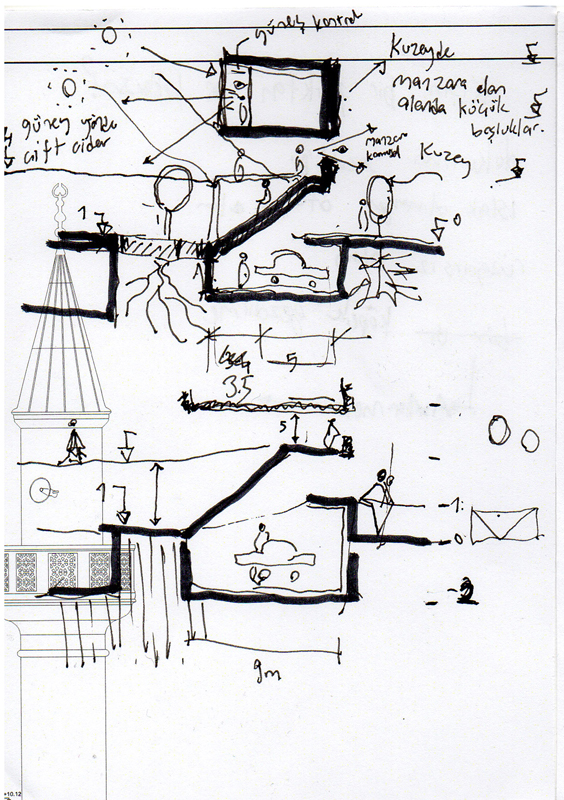 güneş kontrol
Kuzeyde
manzara olan
alanda küçük
boşluklar.
güney yönde
çift cidar
manzara
Kuzey
1
0
5
3.5
5
1
-1
0
9m
+10.12